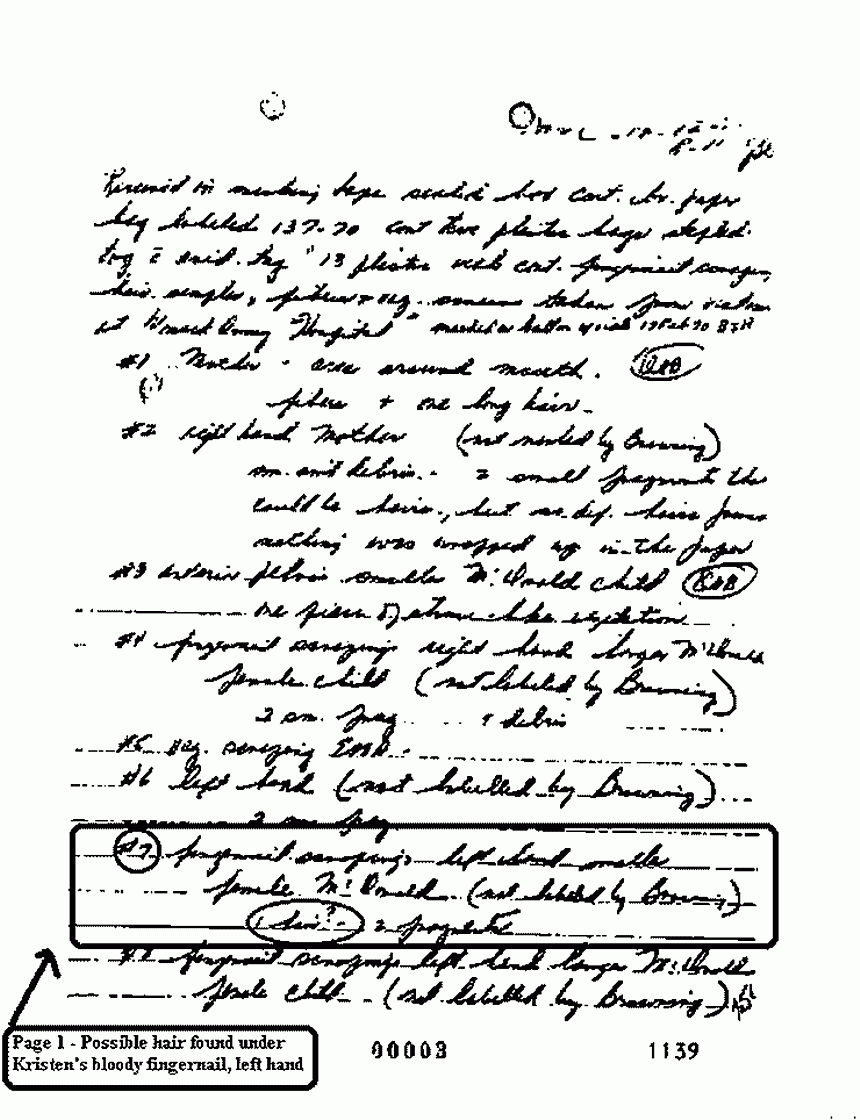 Received in masking tape sealed box cont. br. paper
bag labeled 137-70 cont two plastic bags stapled.
tag c̄ evid. tag "13 plastic vials cont. fingernail scrapings,
hair samples, fibers + veg. taken from victims
at Womack Army Hospital" marked on bottom of vials 17 Feb 70
#1 Mother - area around mouth.
fibers + one long hair -
#2 right hand Mother (not marked by Browning)
sm. amt debris. - 2 small fragments the
could be hair, but no def. hairs found
nothing was wrapped up in the paper
#3 smaller McDonald child
one piece of like vegetation
#4 fingernail scrapings right hand larger McDonald
female child (not labeled by Browning)
2 sm. frag & debris
#5 veg. scraping
#6 left hand (not labelled by Browning)
2 sm frag
#7 fingernail scrapings left hand smaller
female McDonald (not labeled by Browning)
1 hair? - 2 fragments
#8 fingernail scrapings left hand larger McDonald
female child - (not labelled by Browning)
Page 1 - Possible hair found under
Kristen's bloody fingernail, left hand
00003 1139